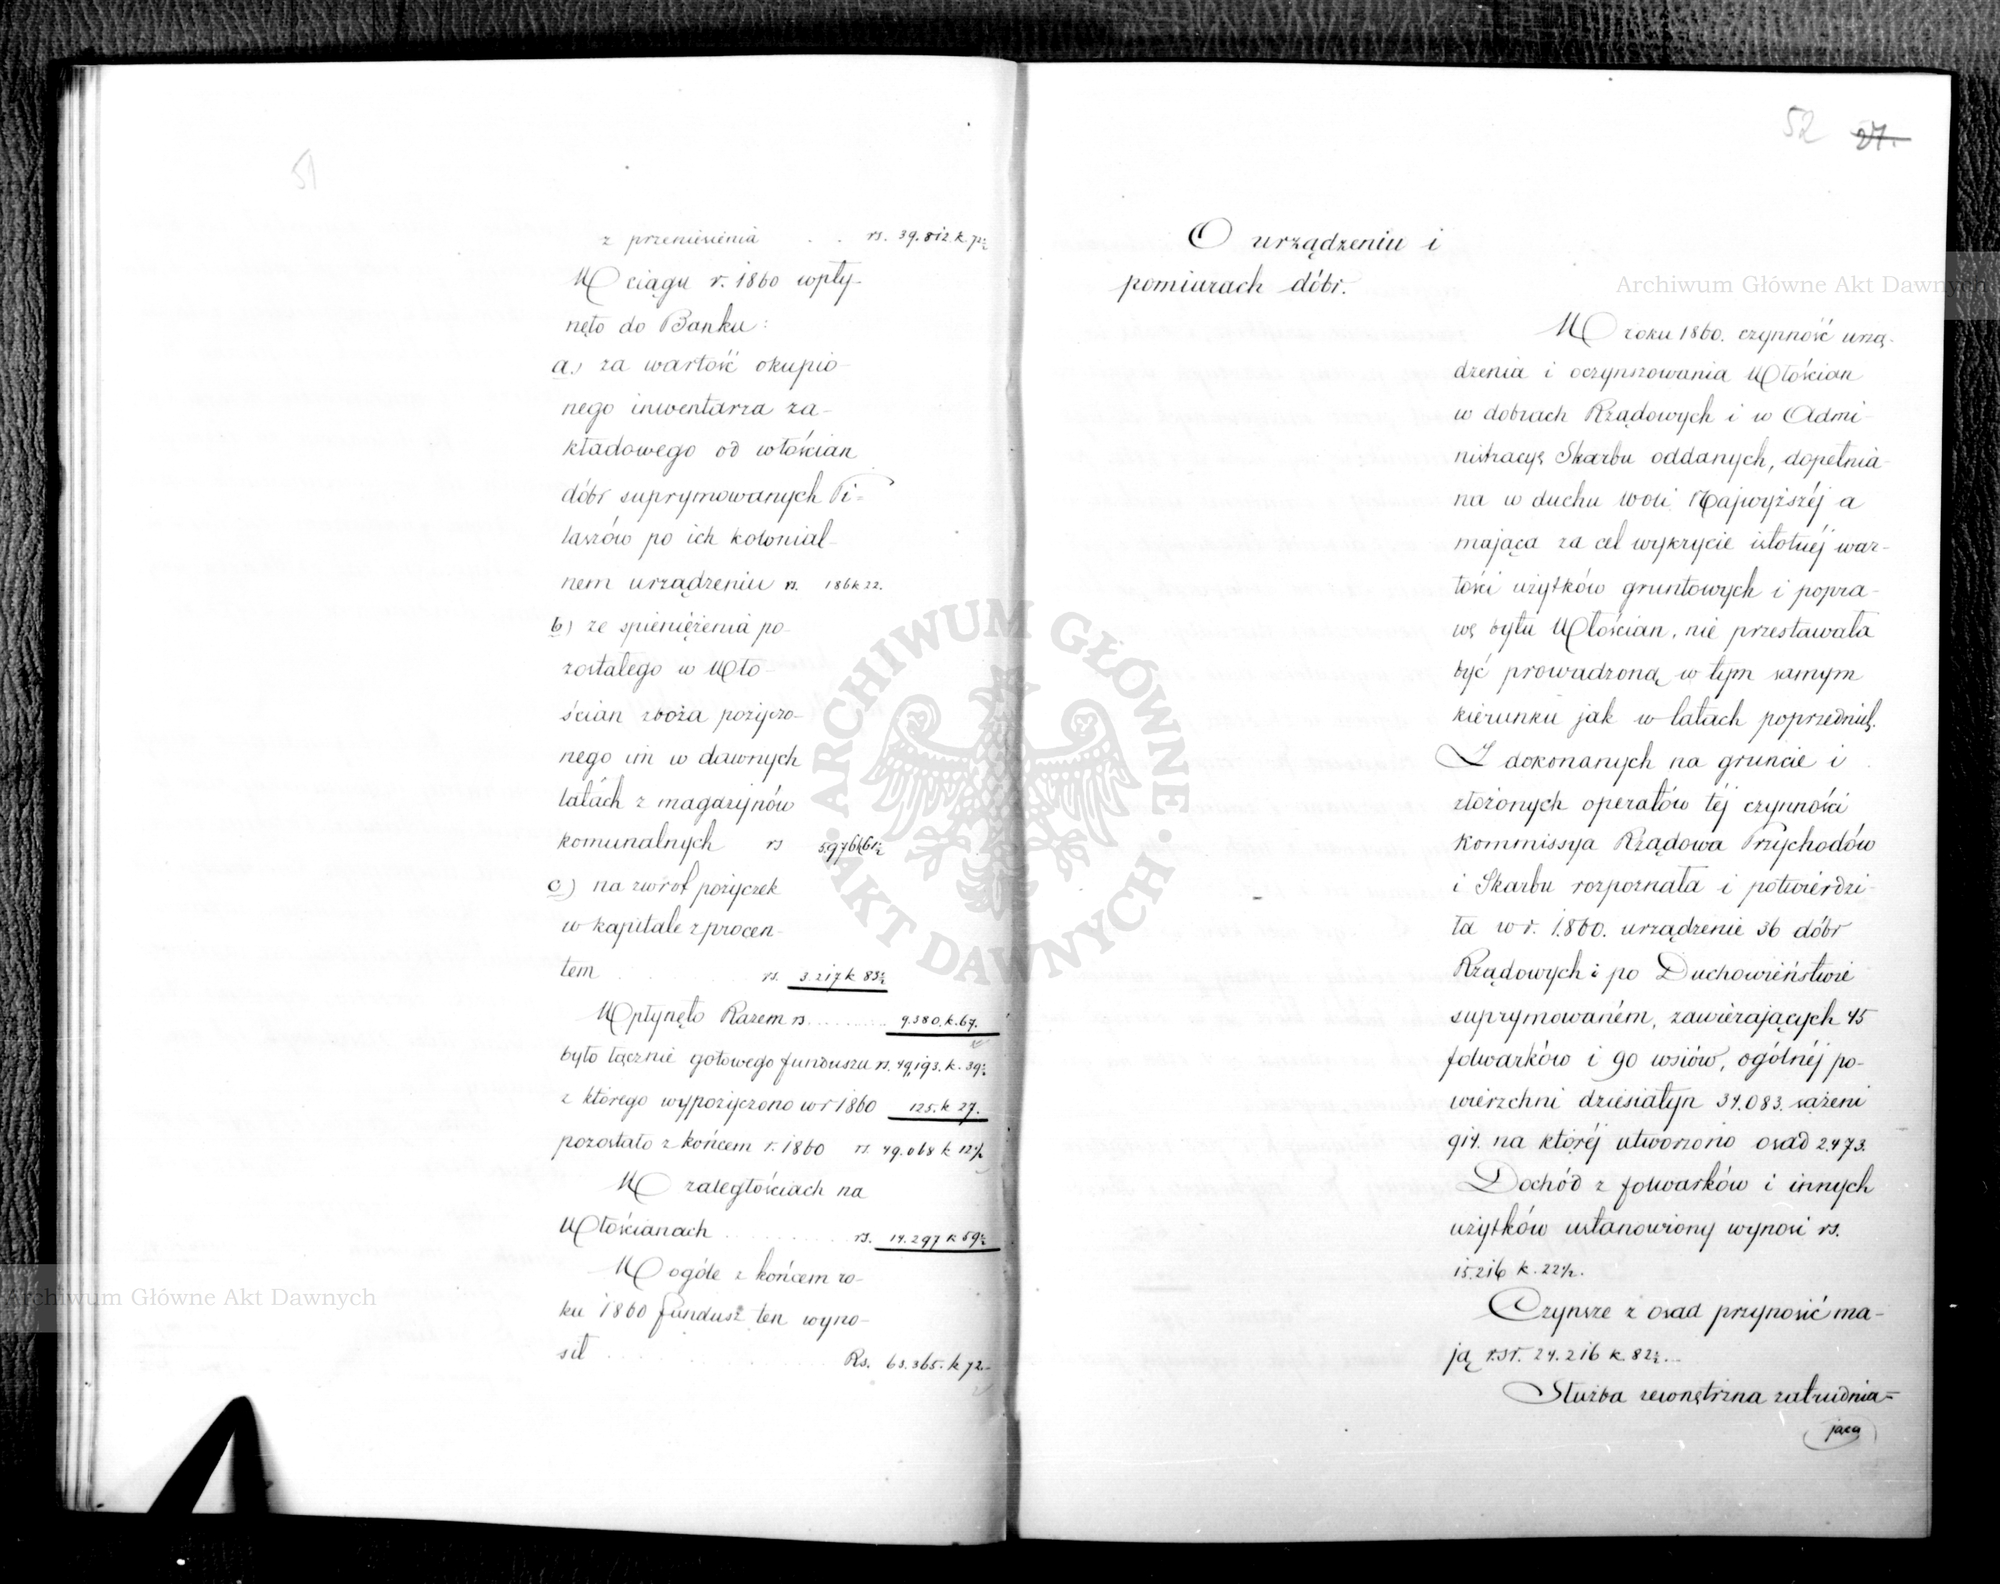 51
z przeniesienia . . rs. 39.812 k. 72½
W ciągu r. 1860 wpły-
nęło do Banku:
a) za wartość okupio-
nego inwentarza za-
kładowego od włościan
dóbr suprymowanych Pi-
laszów po ich kolonial-
nem urządzeniu rs. 186 k 22.
b) ze spieniężenia po-
zostałego u Wło-
ścian zboża pożyczo-
nego im w dawnych
latach z magazynów
komunalnych rs 5976 k 61½
c) na zwrot pożyczek
w kapitale z procen-
tem rs. 3.217 k 83½
Wpłynęło Razem rs. 9.380. k. 67.
było łącznie gotowego funduszu rs. 49,193. k. 39½
z którego wypożyczono w r 1860 125. k 27.
pozostało z końcem r. 1860 rs. 49.068 k 12½
W zaległościach na
Włościanach rs. 14.297 k 59½
W ogóle z końcem ro-
ku 1860 fundusz ten wyno-
sił Rs. 63.365. k 72
52 27.
O urządzeniu i
pomiarach dóbr.
W roku 1860. czynność urzą-
dzenia i oczynszowania Włościan
w dobrach Rządowych i w Admi-
nistracyę Skarbu oddanych, dopełnia-
na w duchu woli Najwyższéj a
mająca za cel wykrycie istotnéj war-
tości użytków gruntowych i popra-
wę bytu Włościan, nie przestawała
być prowadzoną w tym samym
kierunku jak w latach poprzednich.
Z dokonanych na gruncie i
złożonych operatów téj czynności
Kommissya Rządowa Przychodów
i Skarbu rozpoznała i potwierdzi-
ła w r. 1860. urządzenie 36 dóbr
Rządowych i po Duchowieństwie
suprymowaném, zawierających 45
folwarków i 90 wsiów, ogólnéj po-
wierzchni dziesiatyn 34.083. sążeni
914. na któréj utworzono osad 2473.
Dochód z folwarków i innych
użytków ustanowiony wynosi rs.
15.216 k. 22½.
Czynsze z osad przynosić ma-
ją rsr. 24.216 k 82½
Służba zewnętrzna zatrudnia-
jąca
Archiwum Główne Akt Dawnych
ARCHIWUM GŁÓWNE
AKT DAWNYCH
Archiwum Główne Akt Dawnych